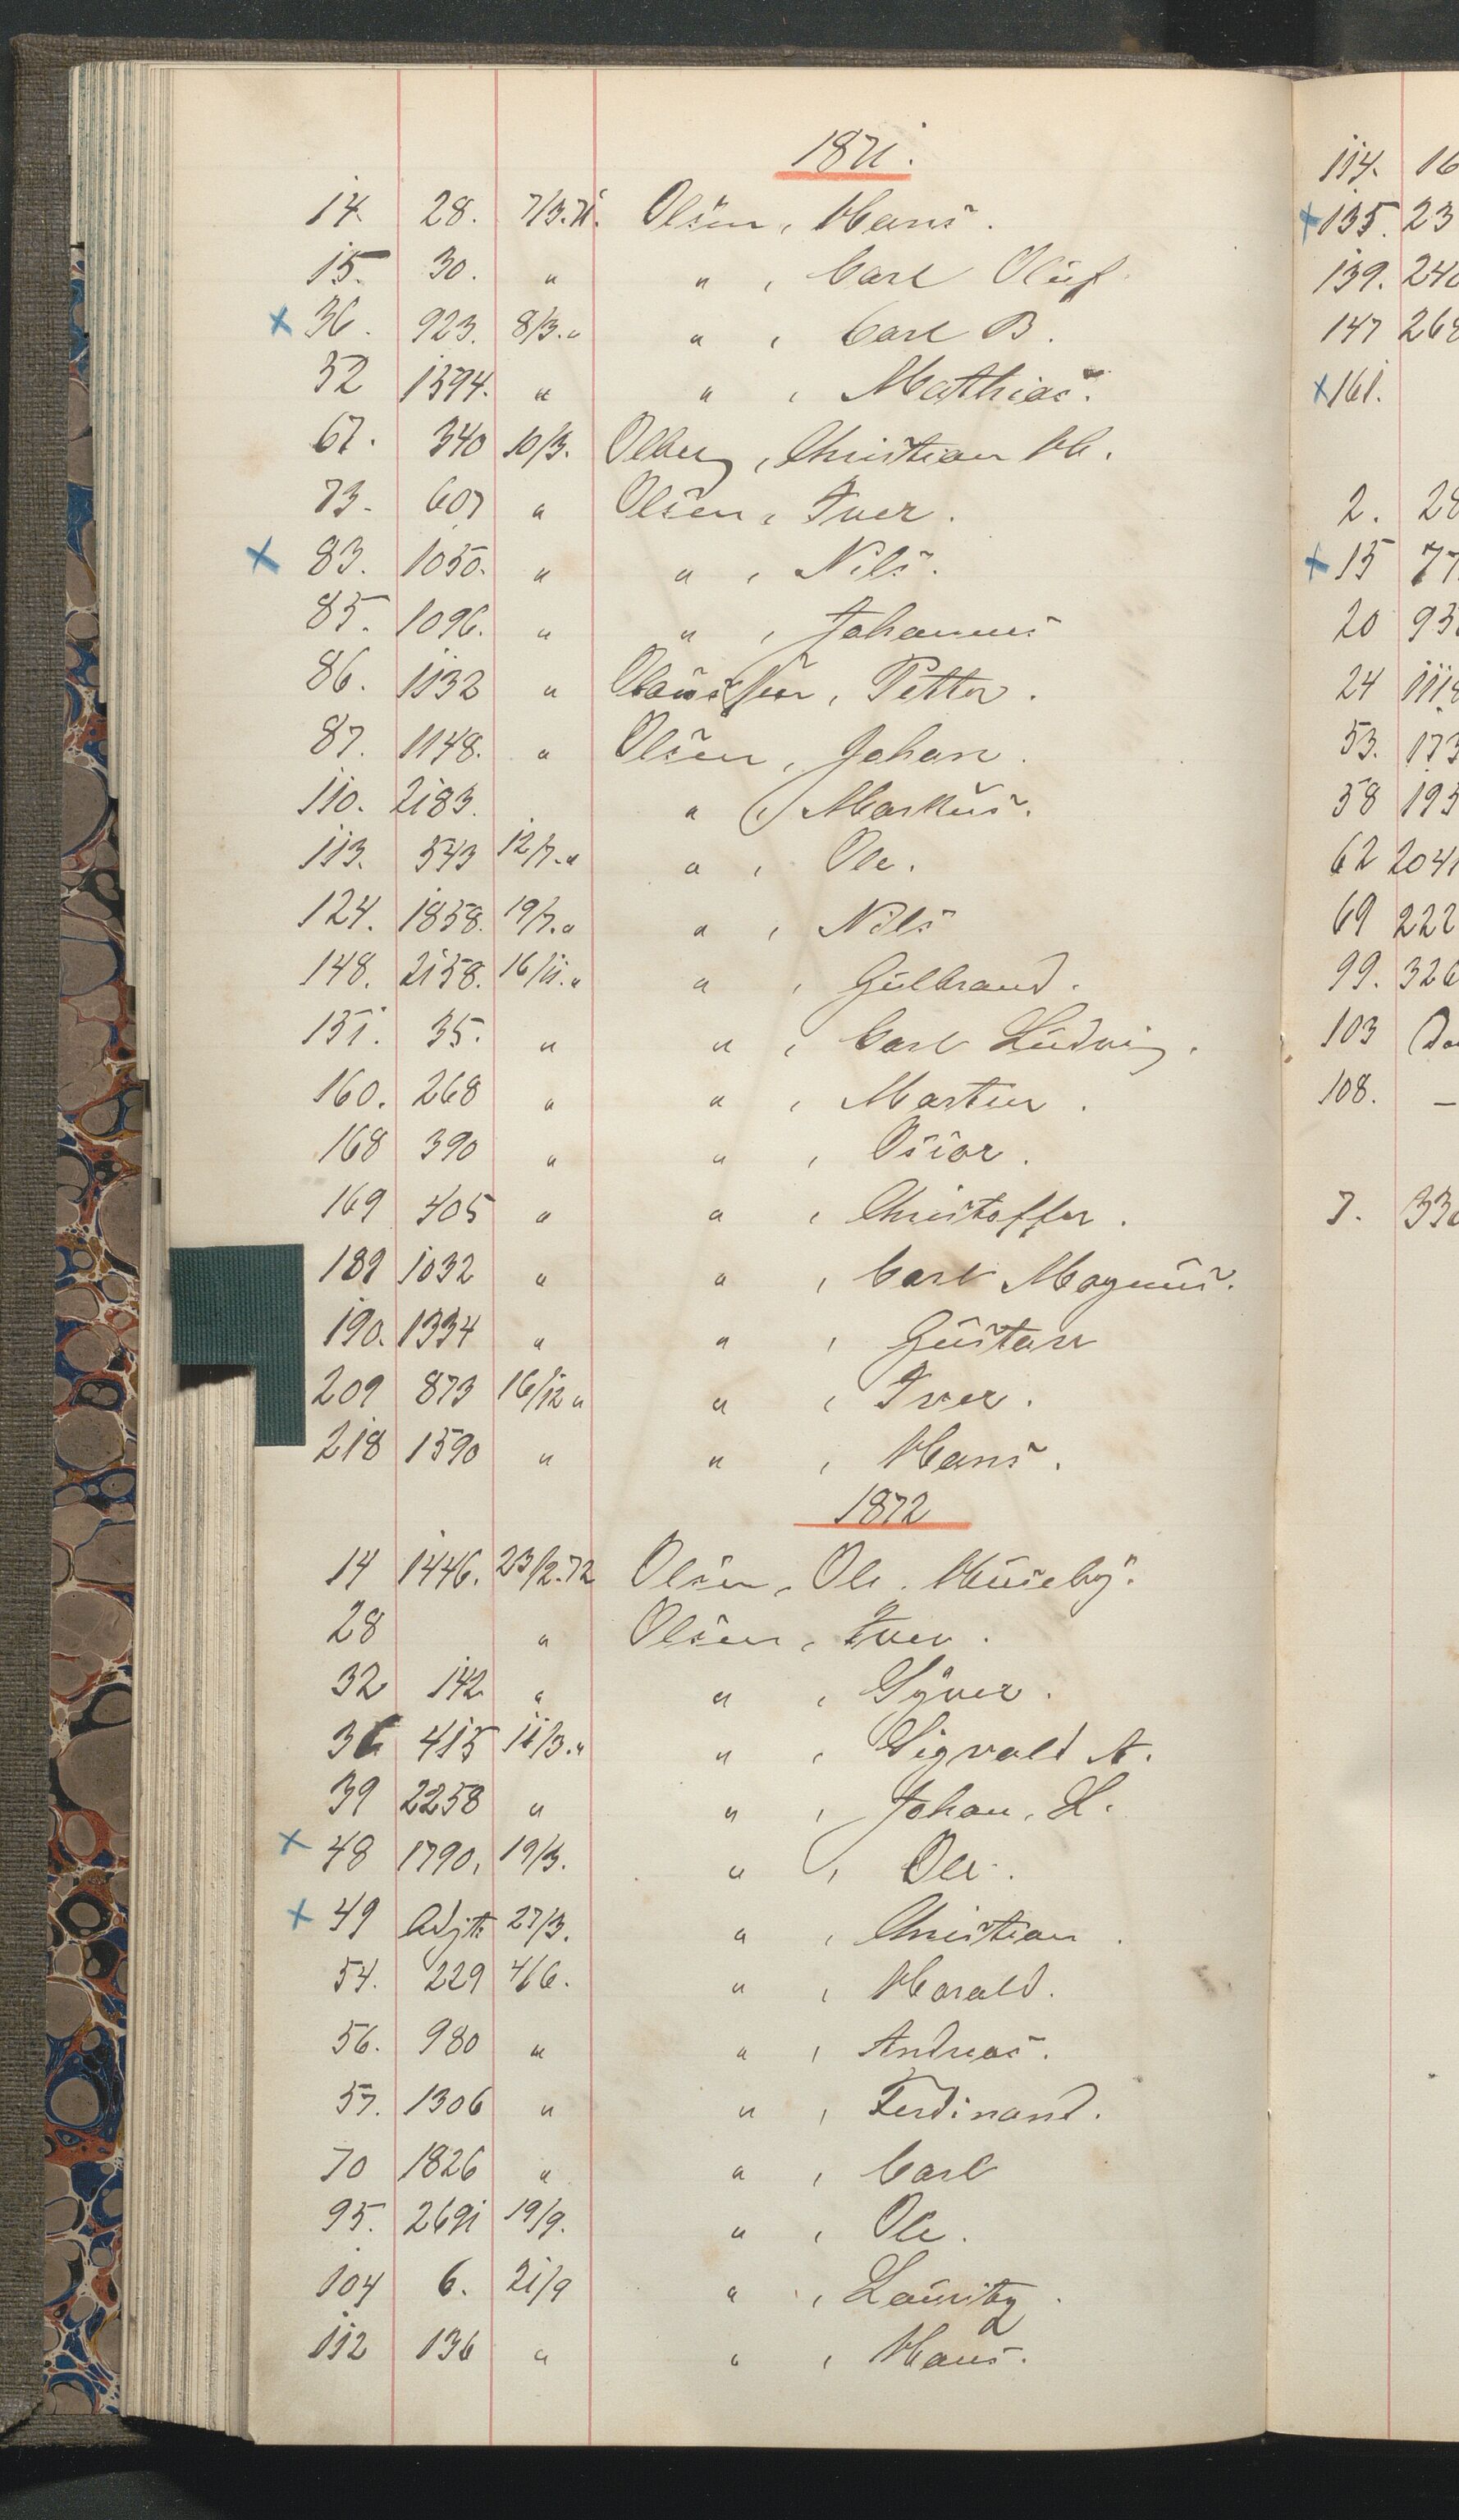 1871.
14. 28. 7/3.71. Olsen, Hans.
15. 30. " " , Carl Oluf
x 36. 923. 8/3. " " , Carl B.
32 1394. " " , Mathias.
67. 340 10/3. Olberg, Christian H.
73. 607 " Olsen, Iver.
x 83. 1050. " " , Nils.
85. 1096. " " , Johannes
86. 1132 " Olaussen, Petter.
87. 1148. " Olsen, Johan.
110. 2183. " , Markus.
113. 543 12/7. " " , Ole.
124. 1858. 19/7. " " , Nils
148. 2158. 16/11. " " , Gulbrand.
151. 35. " " , Carl Ludvig.
160. 268 " " , Martin.
168 390 " " , Oscar.
169 405 " " , Christoffer.
189 1032 " " , Carl Magnus.
190. 1334 " " , Gustav
209 873 16/12 " " , Iver.
218 1590 " " , Hans.
1872
14 1446. 23/2.72 Olsen, Ole. Huseby.
28 " Olsen, Iver.
32 142 " " , Syver.
36 415 11/3. " " , Sigvald A.
39 2258 " " , Johan. L.
x 48 1790, 19/3. " , Ole.
x 49 Adjt: 27/3. " , Christian.
54. 229 4/6. " , Harald.
56. 980 " " , Andreas.
57. 1306 " " , Ferdinand.
70 1826 " " , Carl
95. 2691 19/9. " , Ole.
104 6. 21/9 " , Lauritz.
112 136 " " , Hans.
114. 16
x 135. 23
139. 240
147 268
x 161.
2. 28
x 15 77
20 93
24 111
53. 173
58 195
62 2041
69 222
99. 326
103
108. –
7. 330